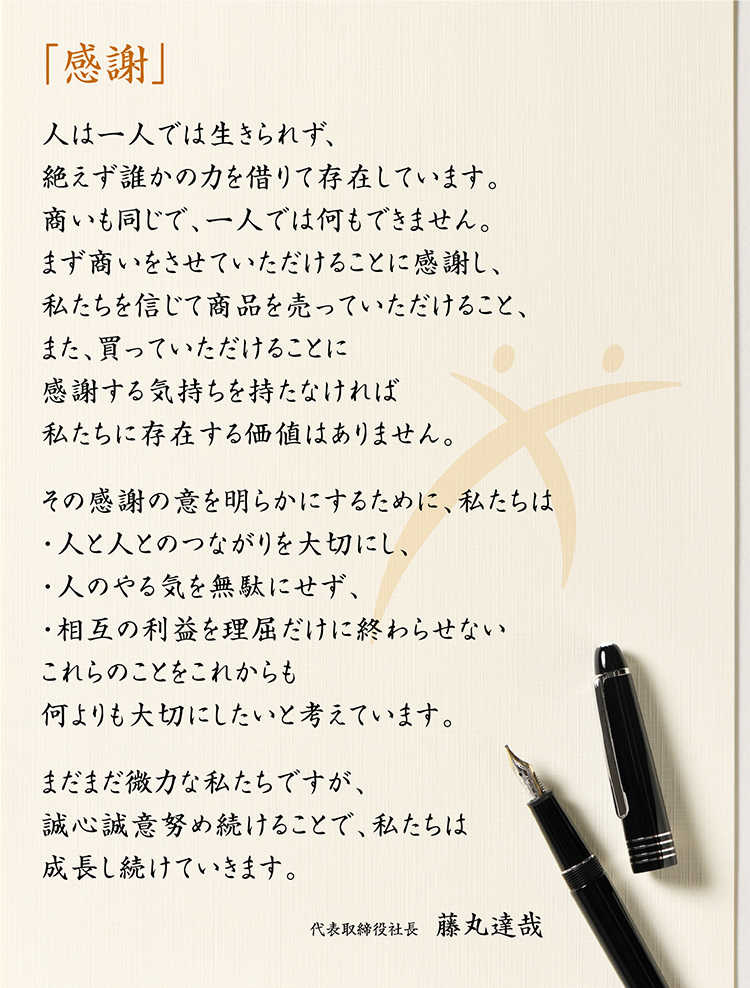 「感謝」
人は一人では生きられず、
絶えず誰かの力を借りて存在しています。
商いも同じで、一人では何もできません。
まず商いをさせていただけることに感謝し、
私たちを信じて商品を売っていただけること、
また、買っていただけることに
感謝する気持ちを持たなければ
私たちに存在する価値はありません。
その感謝の意を明らかにするために、私たちは
・人と人とのつながりを大切にし、
・人のやる気を無駄にせず、
・相互の利益を理屈だけに終わらせない
これらのことをこれからも
何よりも大切にしたいと考えています。
まだまだ微力な私たちですが、
誠心誠意努め続けることで、私たちは
成長し続けていきます。
代表取締役社長 藤丸達哉